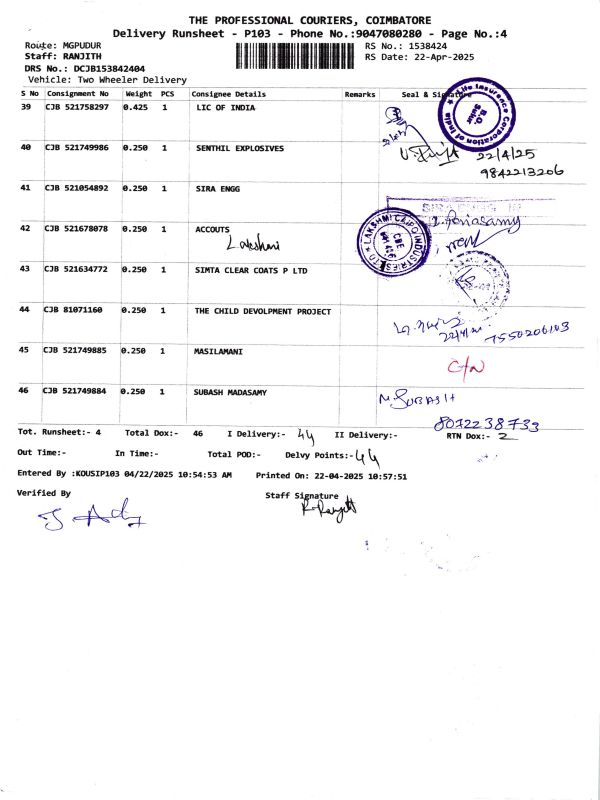 THE PROFESSIONAL COURIERS, COIMBATORE
Delivery Runsheet - P103 - Phone No.:9047080280 - Page No.:4
Route: MGPUDUR
RS No.: 1538424
Staff: RANJITH
RS Date: 22-Apr-2025
DRS No.: DCJB153842404
Vehicle: Two Wheeler Delivery
S No Consignment No Weight PCS Consignee Details Remarks Seal & Signature
39 CJB 521758297 0.425 1 LIC OF INDIA
Life Insurance Corporation of India
40 CJB 521749986 0.250 1 SENTHIL EXPLOSIVES
22/4/25
9842213206
41 CJB 521054892 0.250 1 SIRA ENGG
42 CJB 521678078 0.250 1 ACCOUTS
Lakshmi
43 CJB 521634772 0.250 1 SIMTA CLEAR COATS P LTD
44 CJB 81071160 0.250 1 THE CHILD DEVOLPMENT PROJECT
7550206103
45 CJB 521749885 0.250 1 MASILAMANI
46 CJB 521749884 0.250 1 SUBASH MADASAMY
M. SUBASH
8072238733
Tot. Runsheet:- 4 Total Dox:- 46 I Delivery:- 44 II Delivery:- RTN Dox:- 2
Out Time:- In Time:- Total POD:- Delvy Points:- 44
Entered By :KOUSIP103 04/22/2025 10:54:53 AM Printed On: 22-04-2025 10:57:51
Verified By
Staff Signature